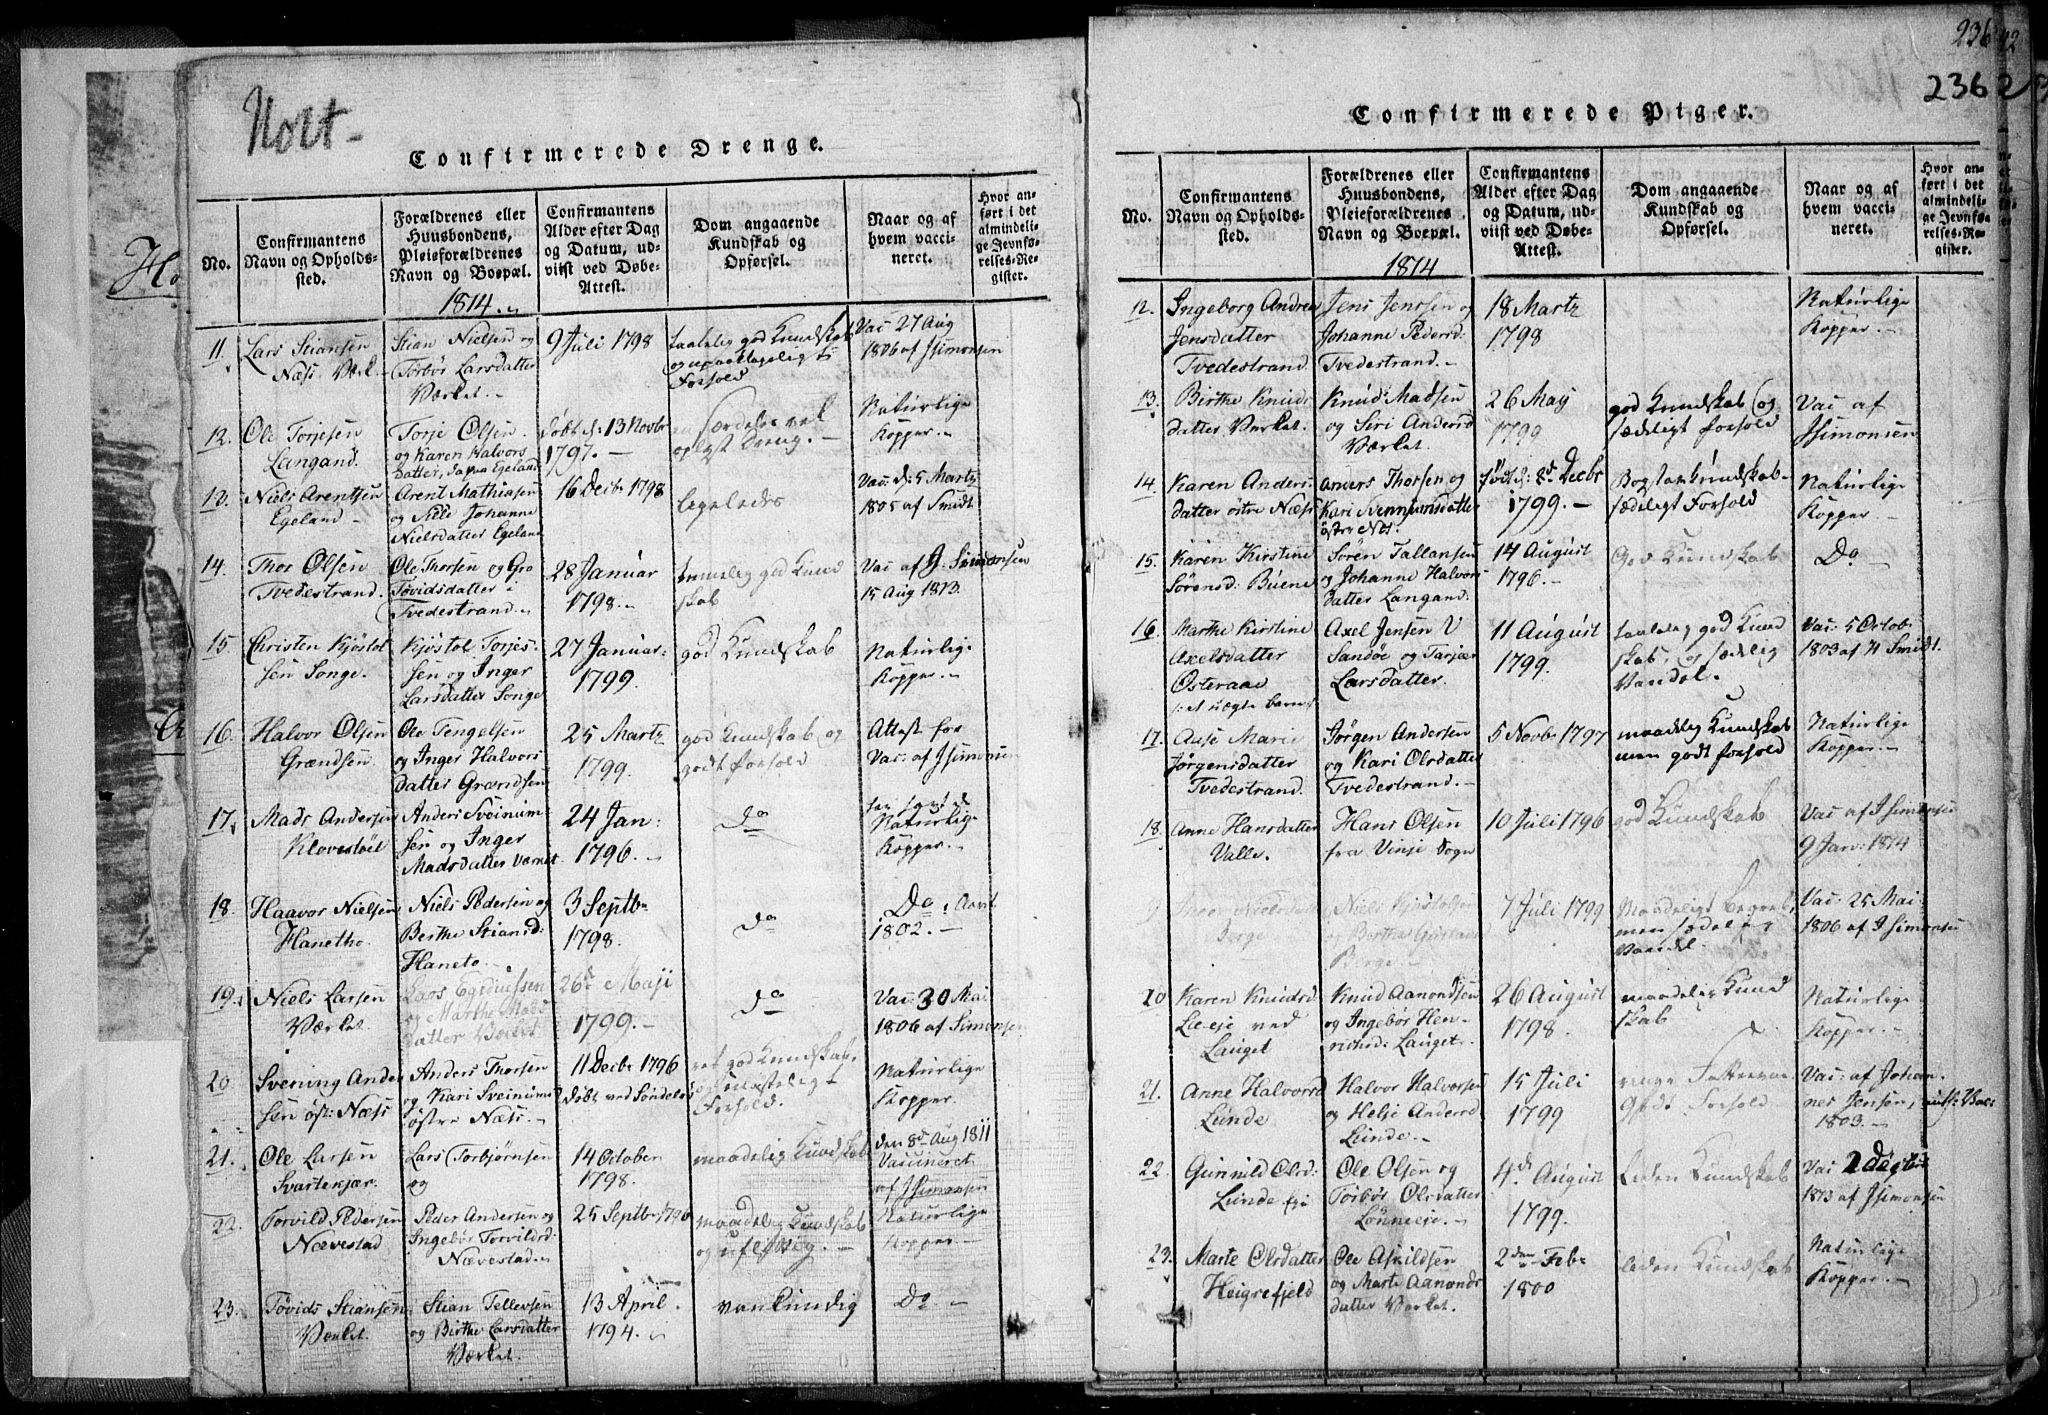 Holt-
Confirmerede Drenge.
No.
Confirmantens
Navn og Opholds-
sted.
Forældrenes eller
Huusbondens,
Pleieforældrenes
Navn og Boepæl.
1814.
Confirmantens
Alder efter Dag
og Datum, ud-
viist ved Døbe-
Attest.
Dom angaaende
Kundskab og
Opførsel.
Naar og af
hvem vacci-
neret.
Hvor an-
ført i det
almindeli-
ge Jevnfø-
relses-Re-
gister.
11. Lars Stiansen
Næs Værk
Stian Nielsen og
Torbør Larsdatter
Værket.
9 Juli 1798
taalelig god Kundskab
og upaaklageligt
Forhold
Vac 27 Aug
1806 af J Simonsen
12. Ole Torjesen
Langand.
Torje Olsen
og Karen Halvors
datter, da paa Egeland
døbt d: 13 Novbr
1797.
særdeles vel
oplyst Dreng.
Naturlige
Kopper.
Niels Arentsen
Egeland
Arent Mathiasen
og Johanne
Nielsdatter Egeland
16 Decbr 1798
ligeledes
Vac: d: 5 Martz
1805 af Smidt
14. Thor Olsen
Tvedestrand.
Ole Thorsen og Gro
Tovidsdatter
Tvedestrand.
28 Januar
1798.
temmelig god Kund
skab
Vac af J. Simonsen
15 Aug 1813.
15 Christen Kjøstol
sen Songe.
Kjøstol Torjes
sen og Inger
Larsdatter Songe
27 Januar
1799.
god Kundskab
Naturlige
Kopper.
16. Halvor Olsen
Grændsen.
Ole Tengelsen
og Inger Halvors
datter Grændsen
25 Martz
1799.
god Kundskab og
godt forhold
Attest for
Vac: af J Simonsen
17. Mads Andersen
Klovestøil
Anders Sveinum
sen og Inger
Madsdatter Værket
24 Jan:
1796.
do
Naturlige
Kopper.
18. Haavor Nielsen
Hanetho.
Niels Pedersen og
Berthe Stiansd:
Haneto.
3 Septbr
1798.
do
Do
1802.
19. Niels Larsen
Værket
Lars Egidiussen
og Marthe Mads
datter Værket
26d Maji
1799.
do
Vac: 30 Mai
1806 af Simonsen
20. Svening Ander
sen øst: Næss
Anders Thorsen
og Kari Sveinums
østre Næss.
11 Decbr 1796
Døbt ved Søndeløv
ret god Kundskab
Forhold.
Naturlige
Kopper.
21. Ole Larsen
Svartekjær.
Lars Torbjørnsen
og
14 October
1798.
maadelig Kundskab
den 8d Aug 1811
Vaccineret
af J Simonsen
22. Torvild Pedersen
Nævestad
Peder Andersen og
Ingebør Torvildsd:
Nævestad.
25 Septbr 1796
maadelig Kundskab
og uflittig.
Naturlige
Kopper
23. Tovids Stiansen
Værket.
Stian Tellevsen
og Birthe Larsdatter
Værket.
13 April
1794.
vankundig
Do
236
236
Confirmerede Piger.
No.
Confirmantens
Navn og Opholds-
sted.
Forældrenes eller
Huusbondens,
Pleieforældrenes
Navn og Boepæl.
1814
Confirmantens
Alder efter Dag
og Datum, ud-
viist ved Døbe-
Attest.
Dom angaaende
Kundskab og
Opførsel.
Naar og af
hvem vacci-
neret.
Hvor an-
ført i det
almindeli-
ge Jevnfø-
relses-Re-
gister.
12. Ingeborg Andrea
Jensdatter
Tvedestrand.
Jens Jenssen og
Johanne Pedersd
Tvedestrand.
18 Martz
1798
Naturlige
Kopper.
13. Birthe Knuds
datter Værket.
Knud Madsen
og Siri Andersd
Værket.
26 May
1799
god Kundskab og
sædeligt forhold
Vac af
J Simonsen
14. Karen Anders
datter østre Næss
Anders Thorsen og
Kari Svennumsdatter
østre Næs
født d: 8d Decbr
1799.
Bogstav kundskab
sædeligt Forhold
Naturlige
Kopper.
15. Karen Kirstine
Sørensd: Buene
Søren Tallausen
og Johanne Halvors
datter Langand:
14 August
1796.
God Kundskab
Do
16. Marthe Kirstine
Axelsdatter
Østeraae
/: et uægte barn
Axel Jensen
Sandøe og Tarjær
Larsdatter.
11 August
1799.
taalelig god Kund
skab, og sædelig
Vandel.
Vac: 5 Octob
1803 af H Smidt.
17. Anse Marie
Jørgensdatter
Tvedestrand.
Jørgen Andersen
og Kari Olsdatter
Tvedestrand.
5 Novbr 1797
maadelig Kundskab
men godt forhold
Naturlige
Kopper.
18. Anne Hansdatter
Valle.
Hans Olsen
fra Vinje Sogn
10 Juli 1796
god Kundskab
Vac af J Simonsen
9 Jan: 1814
Nielsdatter
Berge
Niels Kjøstolsen
og Berthe
Berge
7 Juli 1799
Maadeligt begreb,
men sædelig
Vandel.
Vac: 25 Mai
1806 af J Simonsen
20 Karen Knudsd
Lie-eje ved
Lauget
Knud Aanondsen
og Ingebør Hen-
richsd: Lauget.
26 August
1798.
maadelig Kund
skab
Naturlige
Kopper.
21. Anne Halvorsd
Lunde
Halvor Halvorsen
og Helje Andersd
Lunde.
15 Juli
1799
Godt Forhold
Vac: af Johan-
nes Jensen,
1803.
22. Gunnild Olsd:
Lunde eje
Ole Olsen og
Torbør Olsdatter
Lønneeje.
4d August
1799.
Liden Kundskab
Vac
1813 af J Simonsen
23. Marte Olsdatter
Heigrefjeld
Ole Askildsen
og Marte Aanonds
datter Værket.
2den Febr
1800
liden Kundskab
Naturlige
Kopper.